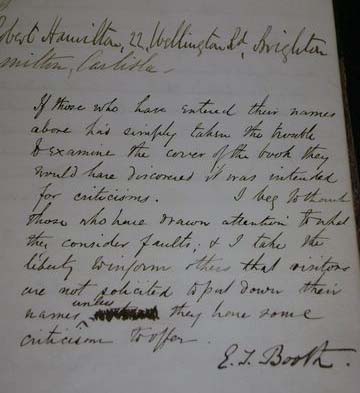 Robert Hamilton, 22, Wellington Rd, Brighton
milton, Carlisle
If those who have entered their names
above had simply taken the trouble
to examine the cover of the book they
would have discovered it was intended
for criticisms. I beg to thank
those who have drawn attention to what
they consider faults; & I take the
liberty to inform others that visitors
are not solicited to put down their
names unless they have some
criticism to offer.
E. T. Booth.